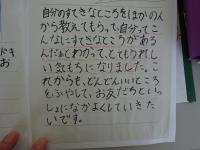 自分のすてきなところをほかの人
から教えてもらって、自分って
こんなにすてきなところがある
んだなとわかって、とてもうれし
い気もちになりました。こ
れからも、どんどんいいところ
をふやして、お友だちといっ
しょになかよくしていきた
いです。
ドキ
お